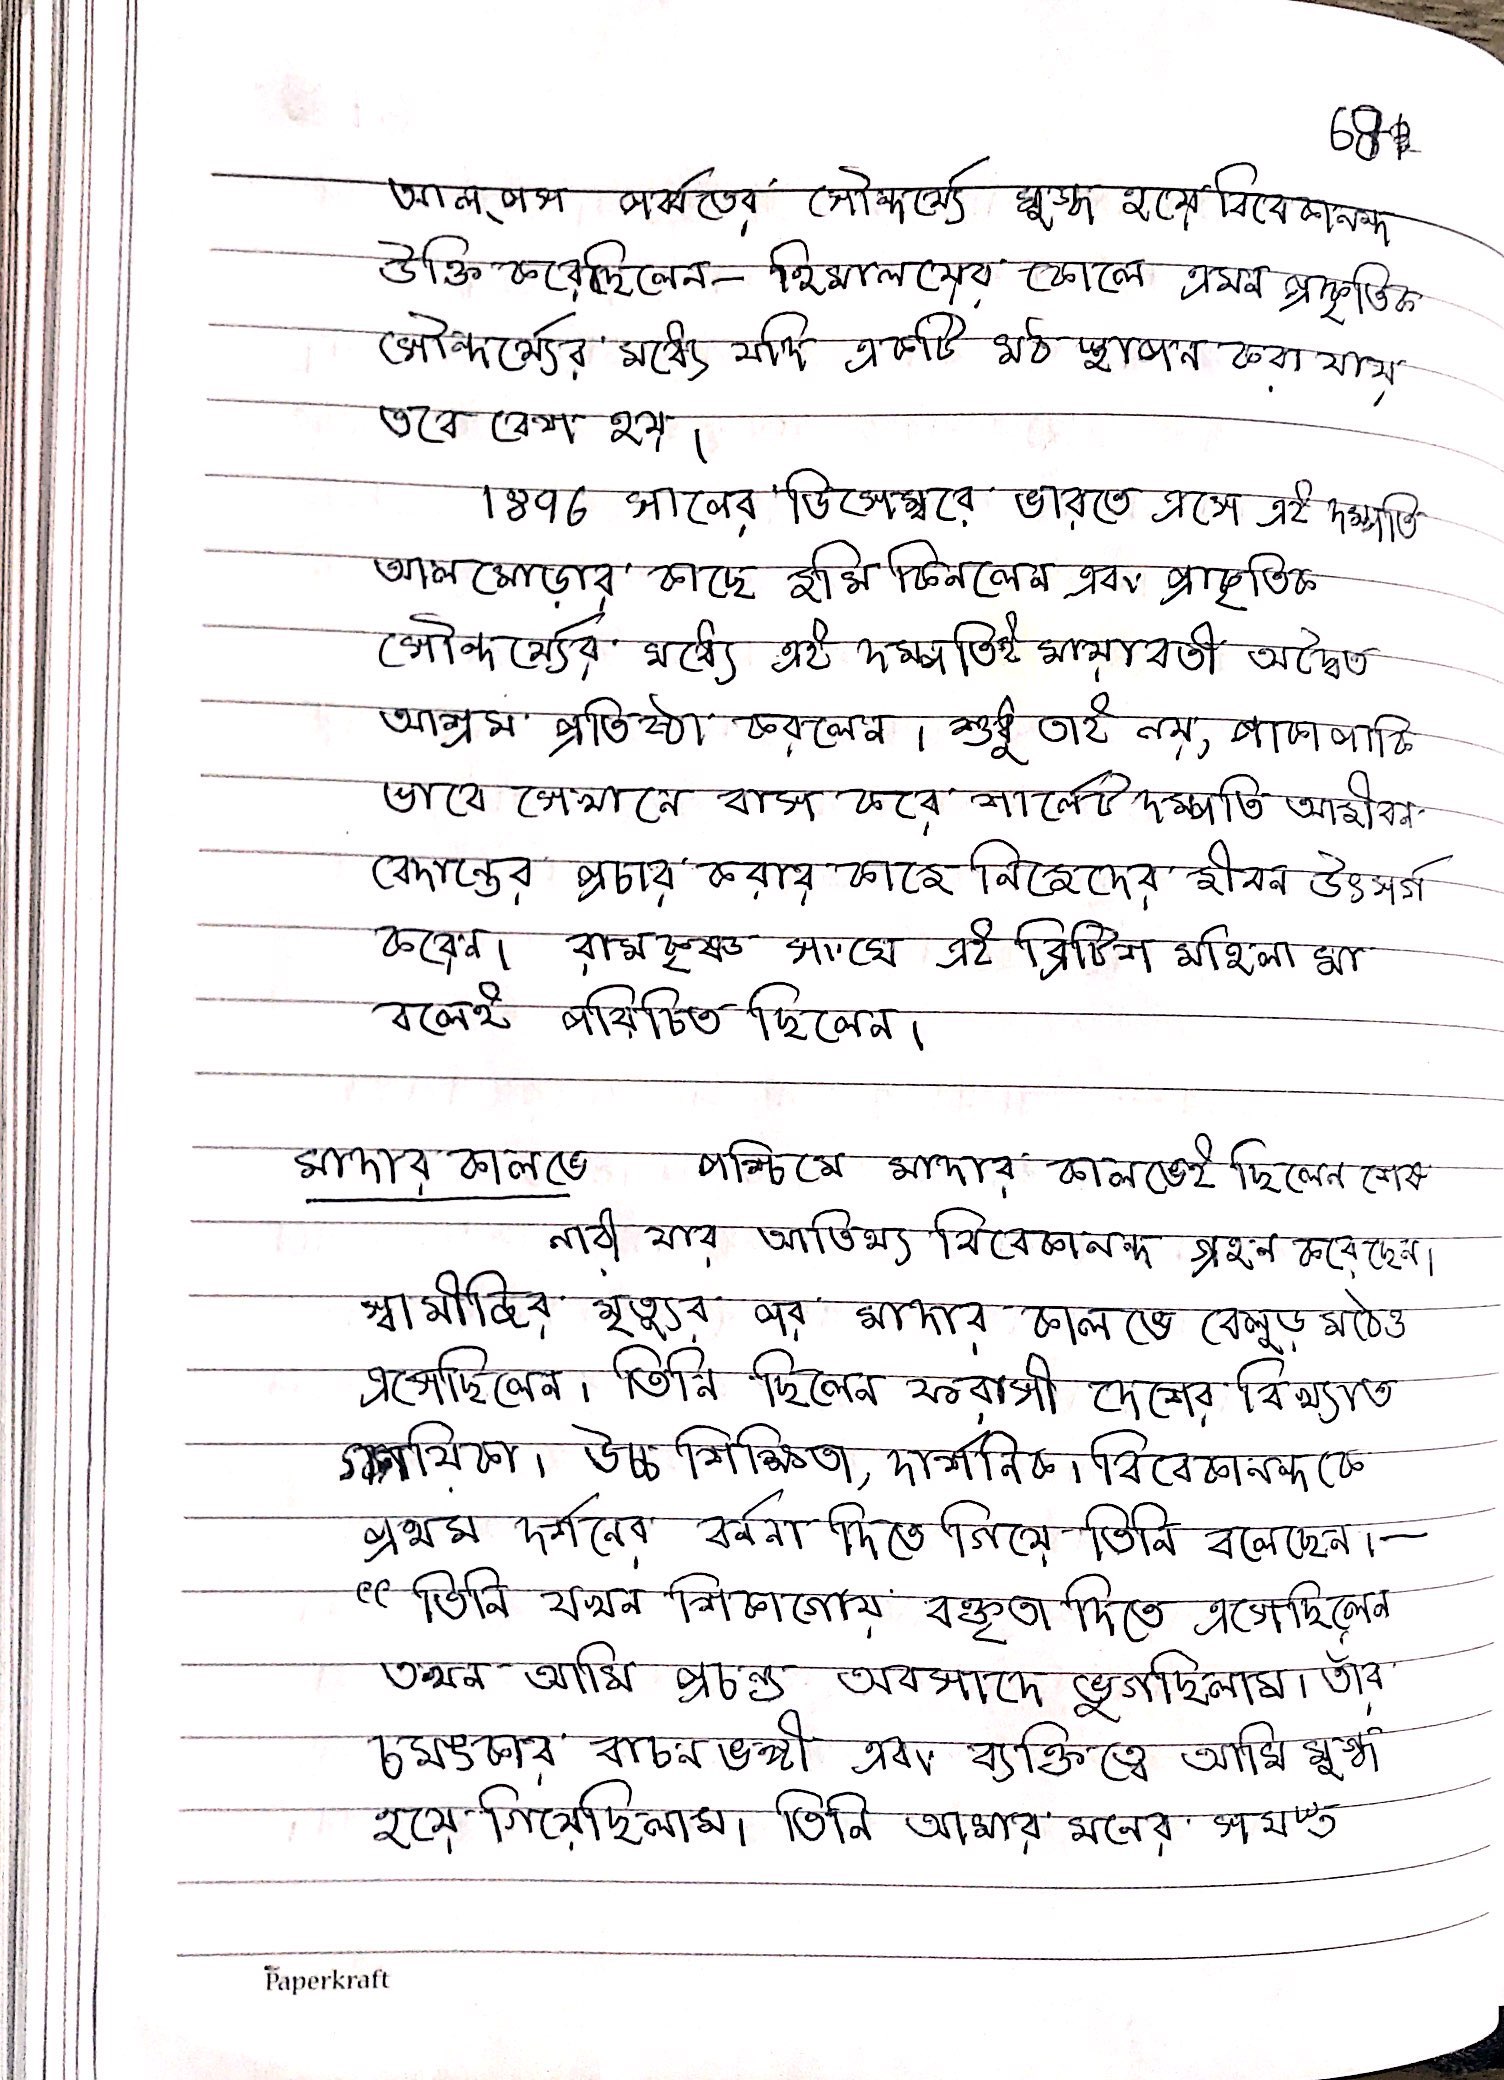 68
আল্পস পর্ব্বতের সৌন্দর্য্যে মুগ্ধ হয়ে বিবেকানন্দ
উক্তি করেছিলেন – হিমালয়ের কোলে এমন প্রাকৃতিক
সৌন্দর্য্যের মধ্যে যদি একটি মঠ স্থাপন করা যায়
তবে বেশ হয়।
1896 সালের ডিসেম্বরে ভারতে এসে এই দম্পতি
আলমোড়ার কাছে জমি কিনলেন এবং প্রাকৃতিক
সৌন্দর্য্যের মধ্যে এই দম্পতিই মায়াবতী অদ্বৈত
আশ্রম প্রতিষ্ঠা করলেন। শুধু তাই নয়, পাকাপাকি
ভাবে সেখানে বাস করে শার্লেট দম্পতি আজীবন
বেদান্তের প্রচার করার কাজে নিজেদের জীবন উৎসর্গ
করেন। রামকৃষ্ণ সংঘে এই ব্রিটিশ মহিলা মা
বলেই পরিচিত ছিলেন।
মাদার কালভে পশ্চিমে মাদার কালভেই ছিলেন শেষ
নারী যার আতিথ্য বিবেকানন্দ গ্রহন করেছেন।
স্বামীজির মৃত্যুর পর মাদার কালভে বেলুড় মঠেও
এসেছিলেন। তিনি ছিলেন ফরাসী দেশের বিখ্যাত
গায়িকা। উচ্চ শিক্ষিতা, দার্শনিক। বিবেকানন্দকে
প্রথম দর্শনের বর্ননা দিতে গিয়ে তিনি বলেছেন।–
“ তিনি যখন শিকাগোয় বক্তৃতা দিতে এসেছিলেন
তখন আমি প্রচন্ড অবসাদে ভুগছিলাম। তাঁর
চমৎকার বাচনভঙ্গী এবং ব্যক্তিত্বে আমি মুগ্ধ
হয়ে গিয়েছিলাম। তিনি আমার মনের সমস্ত
Paperkraft